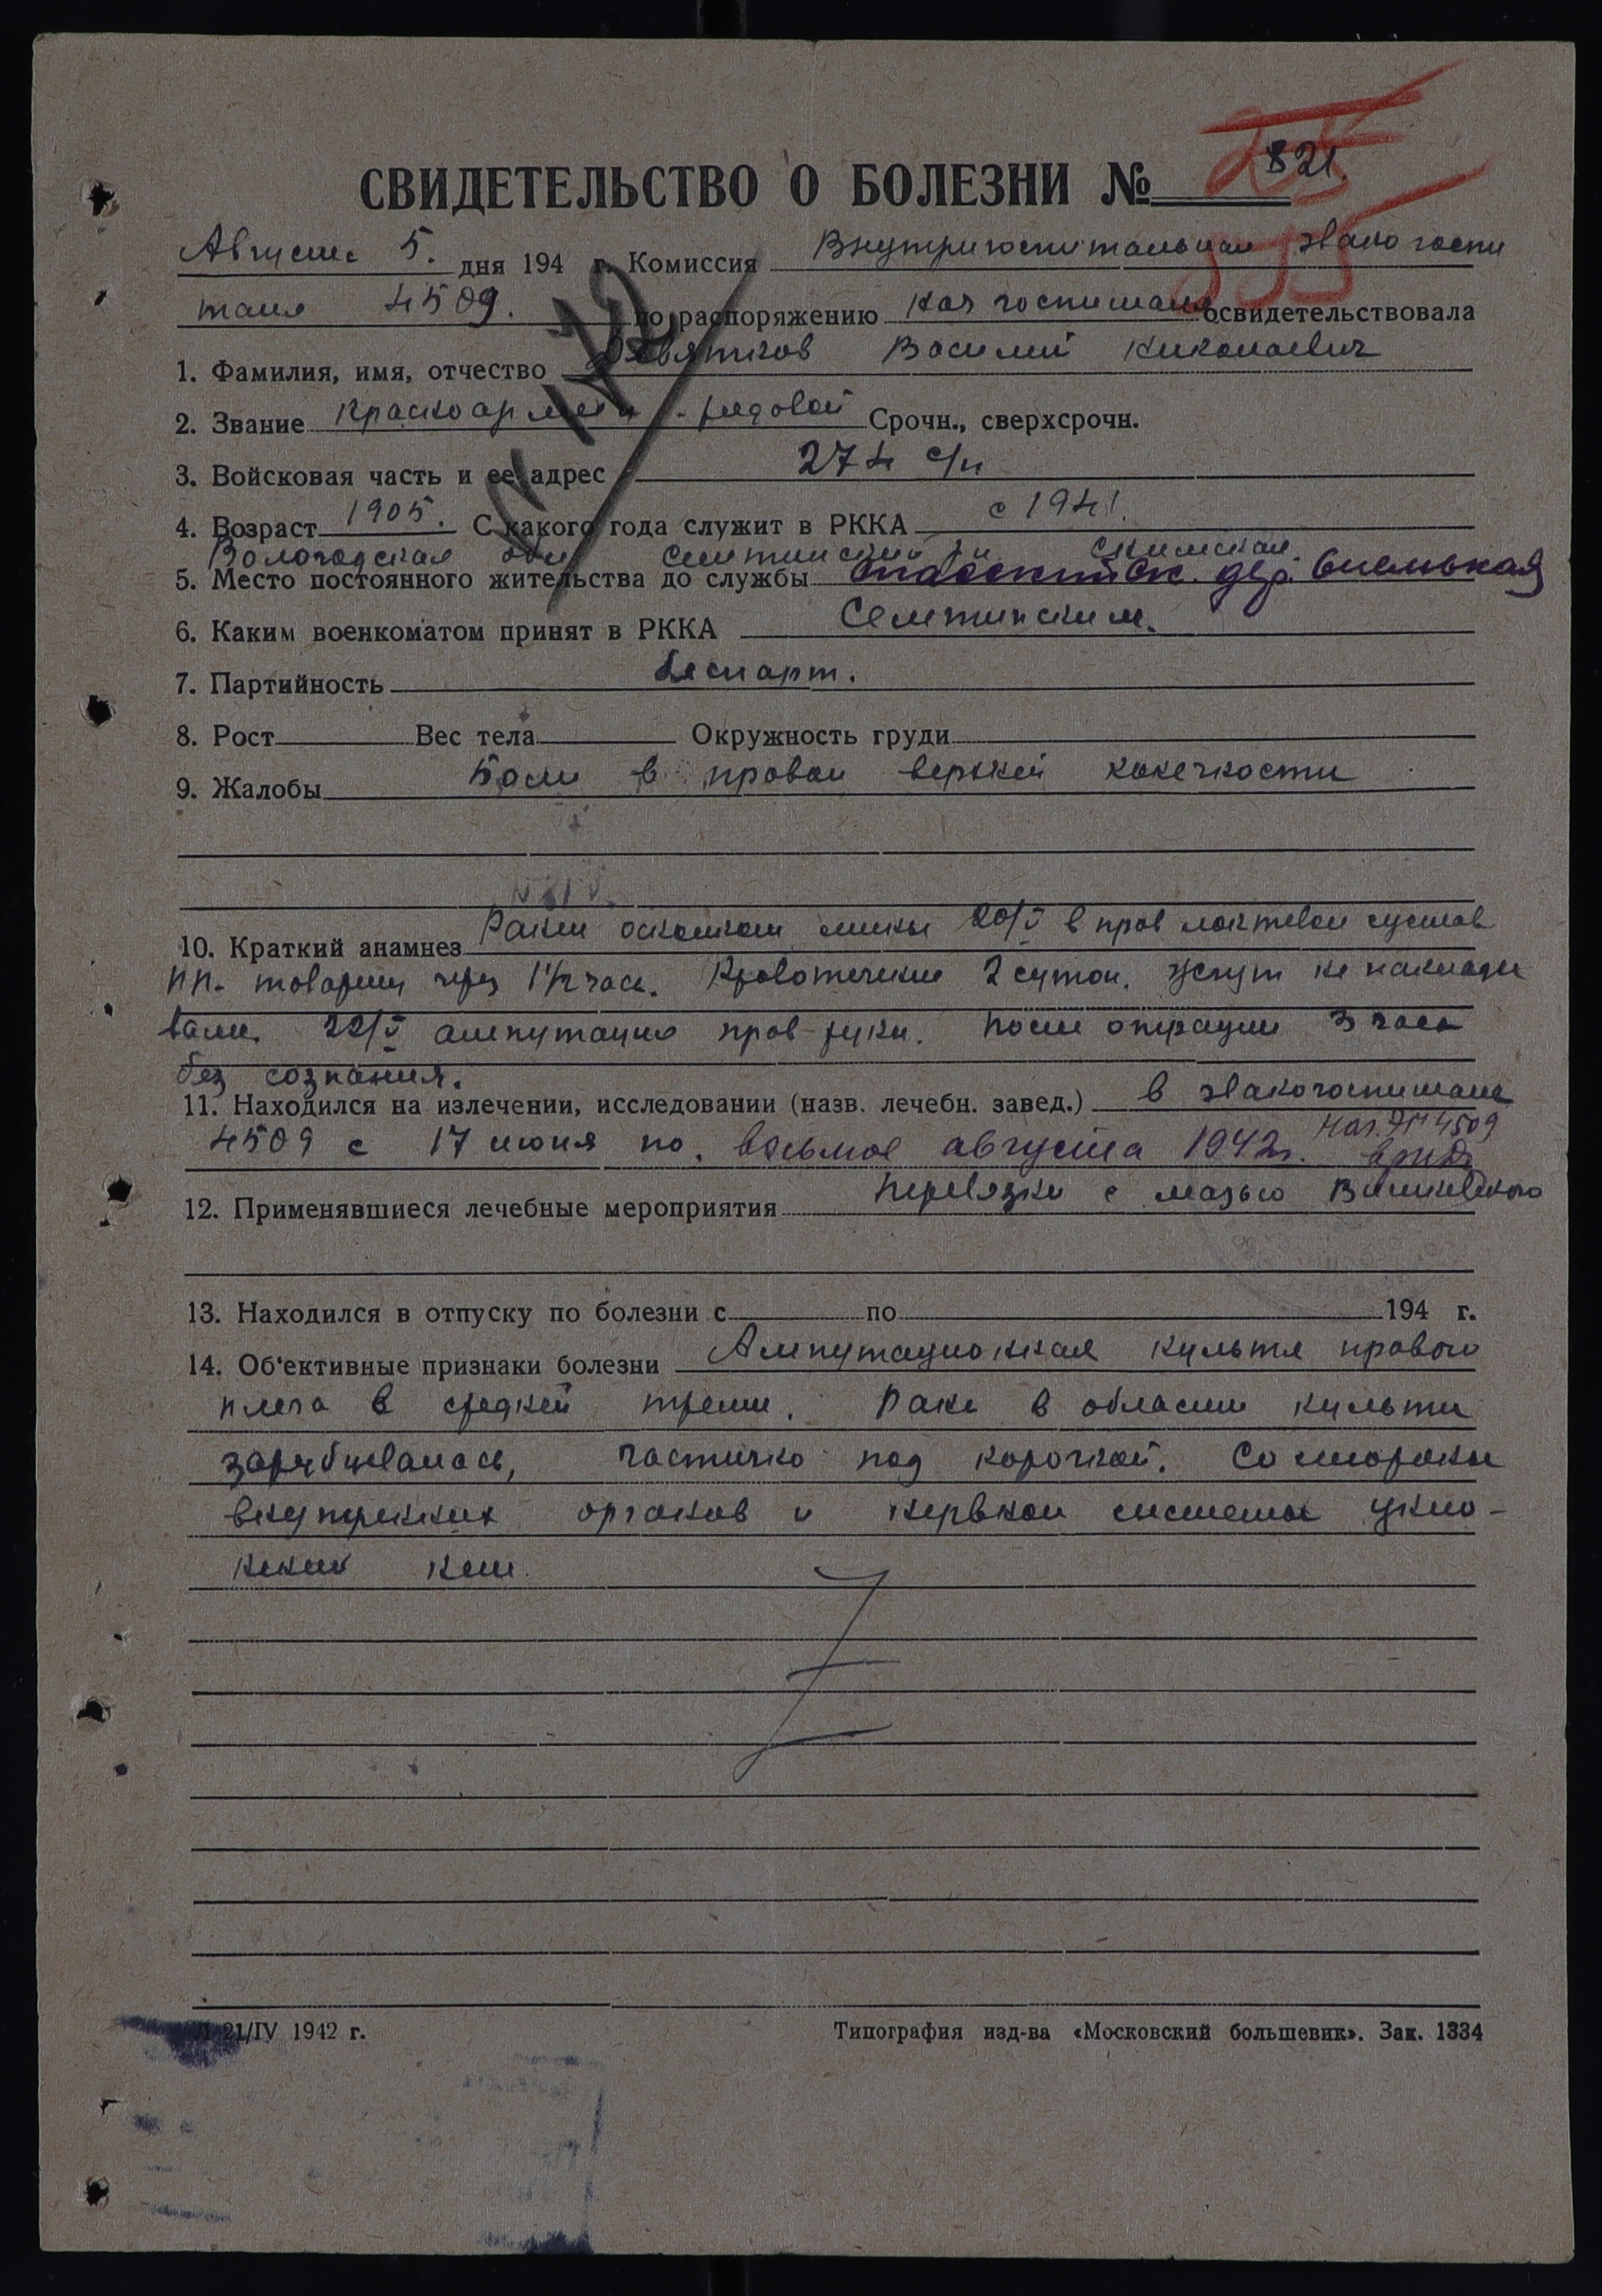 821.
СВИДЕТЕЛЬСТВО О БОЛЕЗНИ №
Августа 5. дня 194 г. Комиссия Внутригоспитальная эвакогоспи
таля 4509. по распоряжению нач госпиталя освидетельствовала
1. Фамилия, имя, отчество Девятков Василий Николаевич
2. Звание Красноармеец - рядовой Срочн., сверхсрочн.
3. Войсковая часть и ее адрес 274 с/п
4. Возраст 1905. С какого года служит в РККА с 1941.
Вологодская обл
5. Место постоянного жительства до службы дер.
6. Каким военкоматом принят в РККА
7. Партийность беспарт.
8. Рост Вес тела Окружность груди
9. Жалобы Боли в правой верхней конечности
10. Краткий анамнез Ранен осколком мины 20/V в прав локтевой сустав
ПП. товарищ через 1 1/2 часа. Кровотечение 2 суток. Жгут не наклады
вали. 22/V ампутация прав руки. После операции 3 часа
без сознания.
11. Находился на излечении, исследовании (назв. лечебн. завед.) в эвакогоспитале
4509 с 17 июня по. восьмое августа 1942г. Нач. ЭГ 4509
12. Применявшиеся лечебные мероприятия перевязки с мазью Вишневского
13. Находился в отпуску по болезни с по 194 г.
14. Об'ективные признаки болезни Ампутационная культя правого
плеча в средней трети. Рана в области культи
зарубцевалась, частично под корочкой. Со стороны
внутренних органов и нервной системы укло-
нений нет.
Л 21/IV 1942 г.
Типография изд-ва «Московский большевик». Зак. 1334